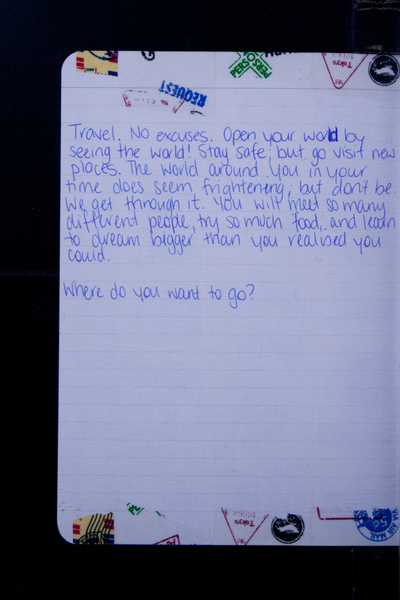 REQUEST
PERSON
Tokyo
Travel. No excuses. Open your world by
seeing the world! Stay safe, but go visit new
places. The world around you in your
time does seem frightening, but don't be.
We get through it. You will meet so many
different people, try so much food, and learn
to dream bigger than you realised you
could.
Where do you want to go?
Tokyo
VIA AIR MAIL